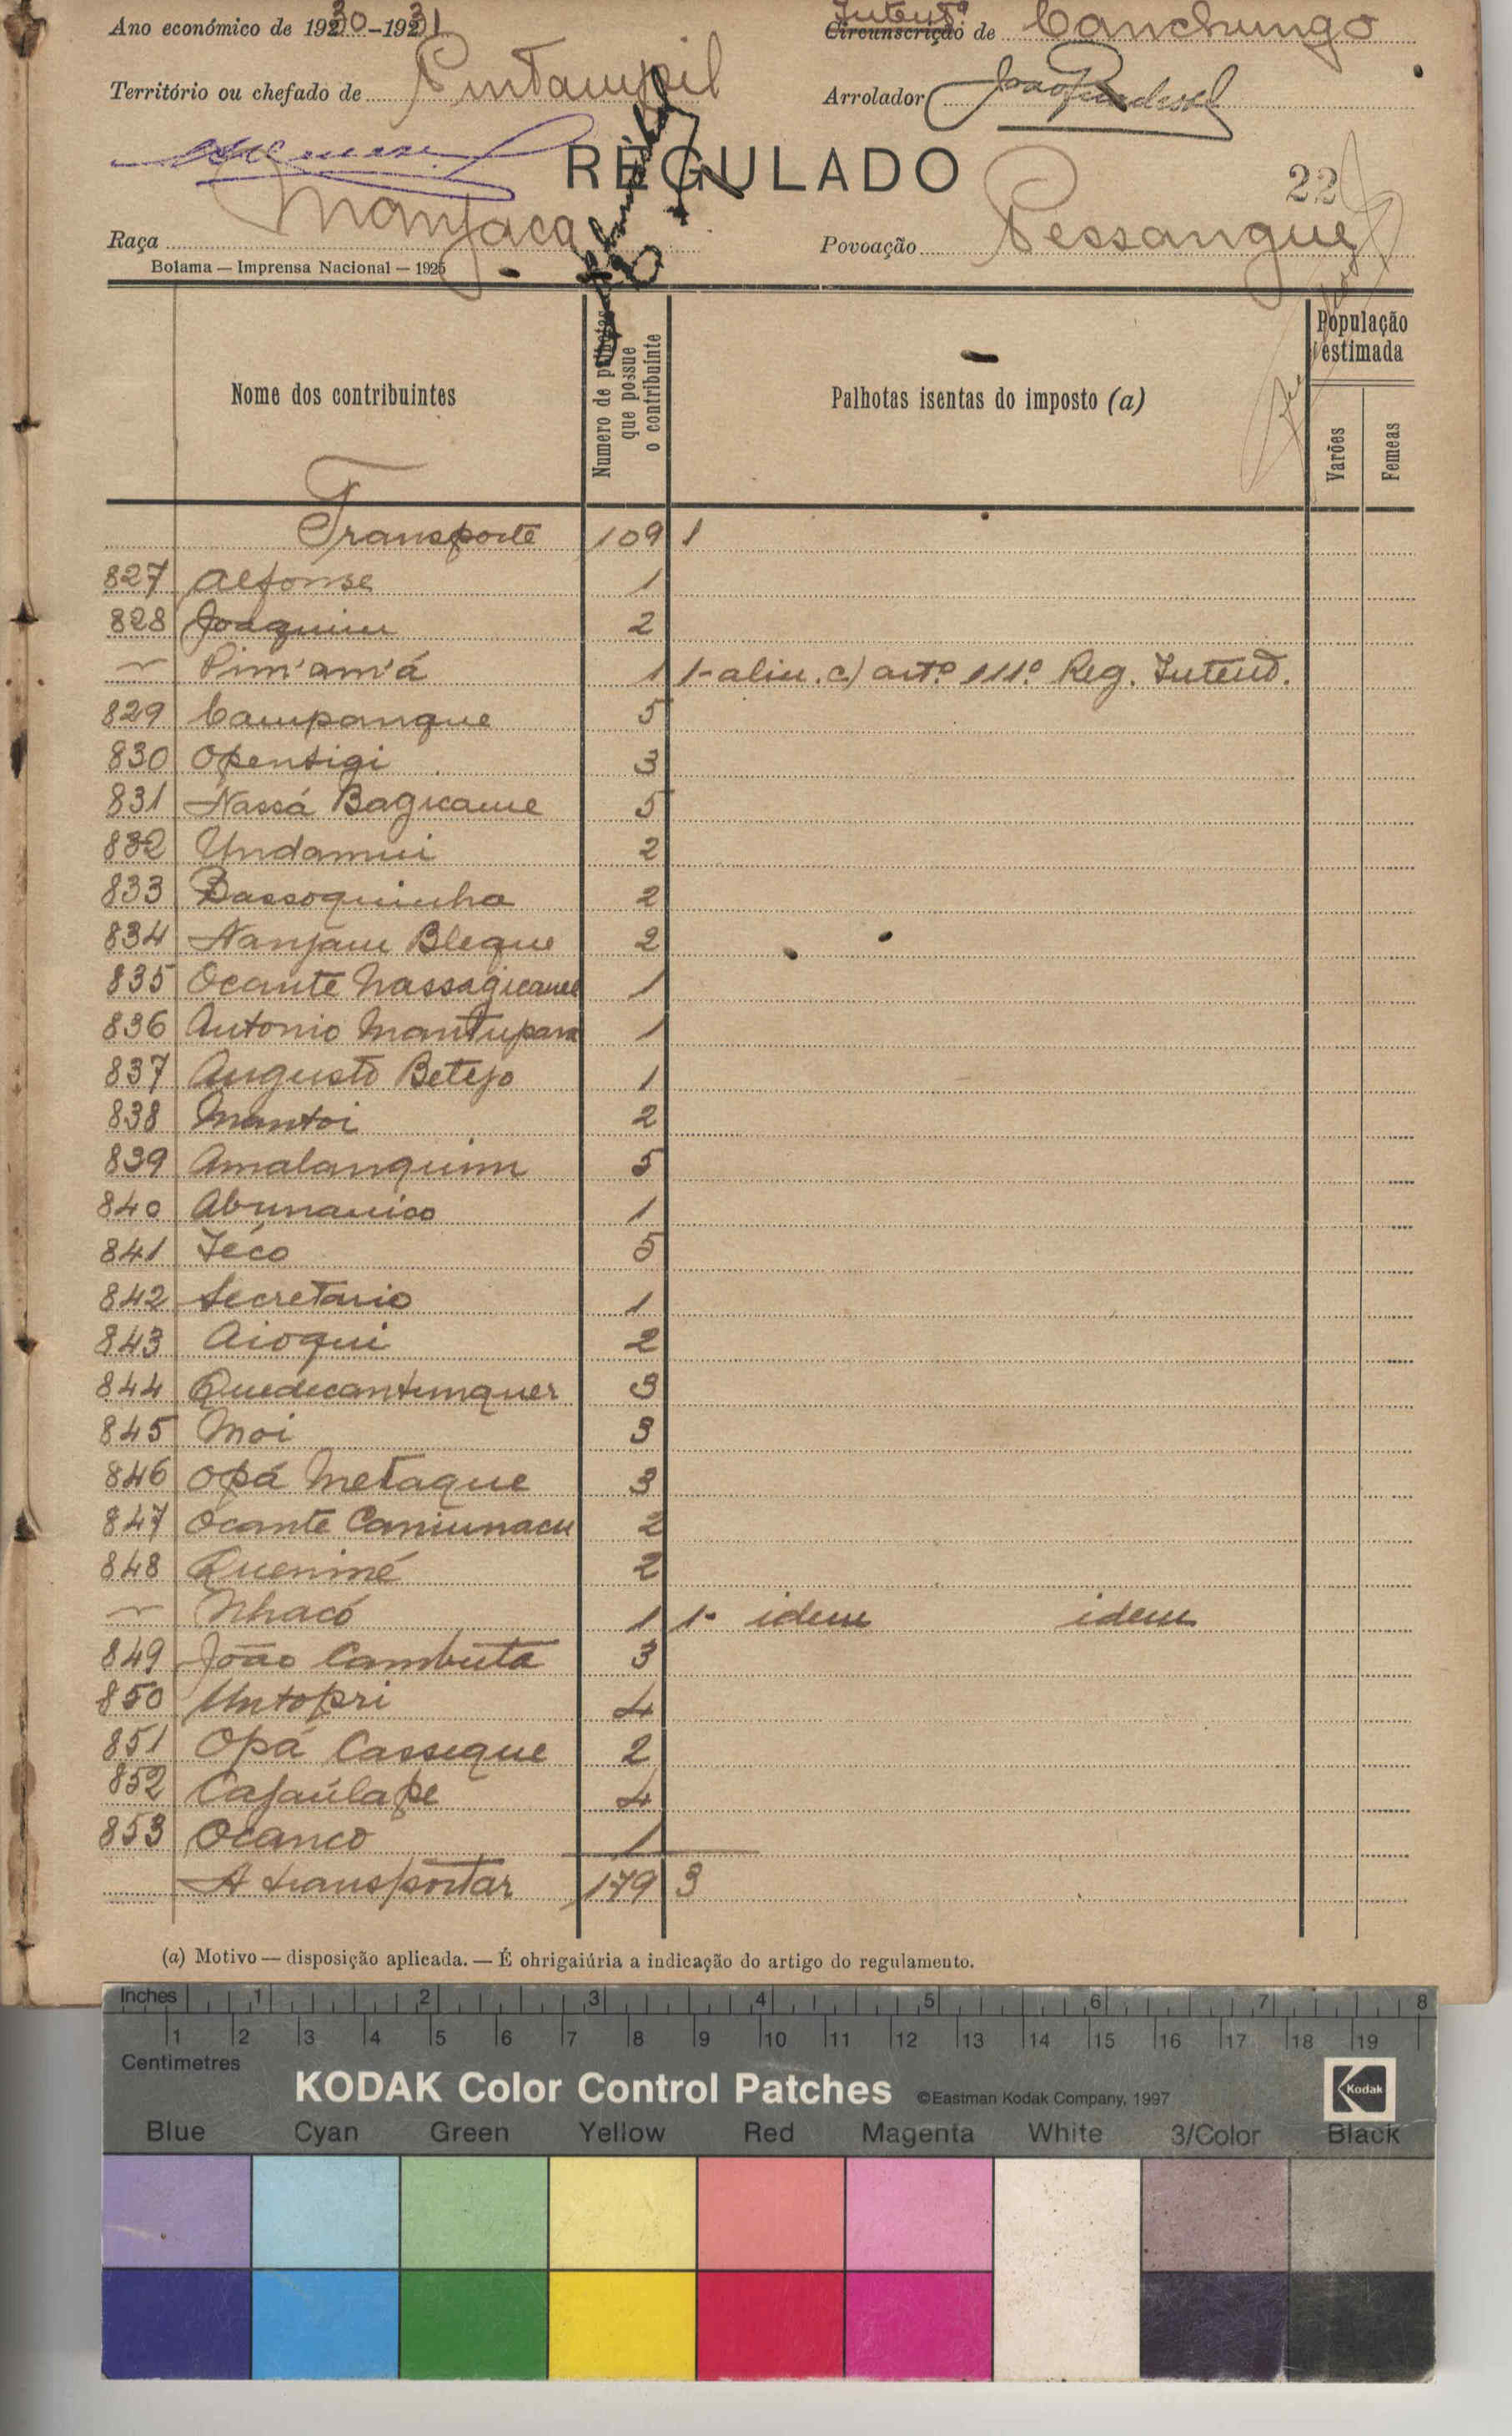 Ano económico de 1930-1931
Intend.ª Circunscrição de Canchungo
Território ou chefado de Pintampil
Arrolador
REGULADO
22
Raça Manjaca
Povoação Pessangue
Bolama — Imprensa Nacional — 1925
Nome dos contribuintes
Numero de palhotas que possue o contribuinte
Palhotas isentas do imposto (a)
População estimada
Varões
Femeas
Transporte 109 1
827 Alfonse 1
828 Joaquim 2
— Pim'am'á 1 1- alin. c) art.º 111.º Reg. Intend.
829 Campangue 5
830 Opensigi 3
831 Nassá Bagicame 5
832 Undamui 2
833 Bassoquinha 2
834 Nanjam Bleque 2
835 Ocante Nassagicame 1
836 Antonio Mantupam 1
837 Augusto Betejo 1
838 Mantoi 2
839 Amalanquim 5
840 Abunanico 1
841 Iéco 5
842 Secretario 1
843 Aioqui 2
844 Quedecantunquer 3
845 Moi 3
846 Opá Metaque 3
847 Ocante Caniunacu 2
848 Queniné 2
— Nhacó 1 1- idem idem
849 João Cambuta 3
850 Untopri 4
851 Opá Casseque 2
852 Cajaúlape 4
853 Ocanco 1
A transportar 179 3
(a) Motivo — disposição aplicada. — É ohrigaiúria a indicação do artigo do regulamento.
Inches 1 2 3 4 5 6 7 8
1 2 3 4 5 6 7 8 9 10 11 12 13 14 15 16 17 18 19
Centimetres
KODAK Color Control Patches ©Eastman Kodak Company, 1997 Kodak
Blue Cyan Green Yellow Red Magenta White 3/Color Black